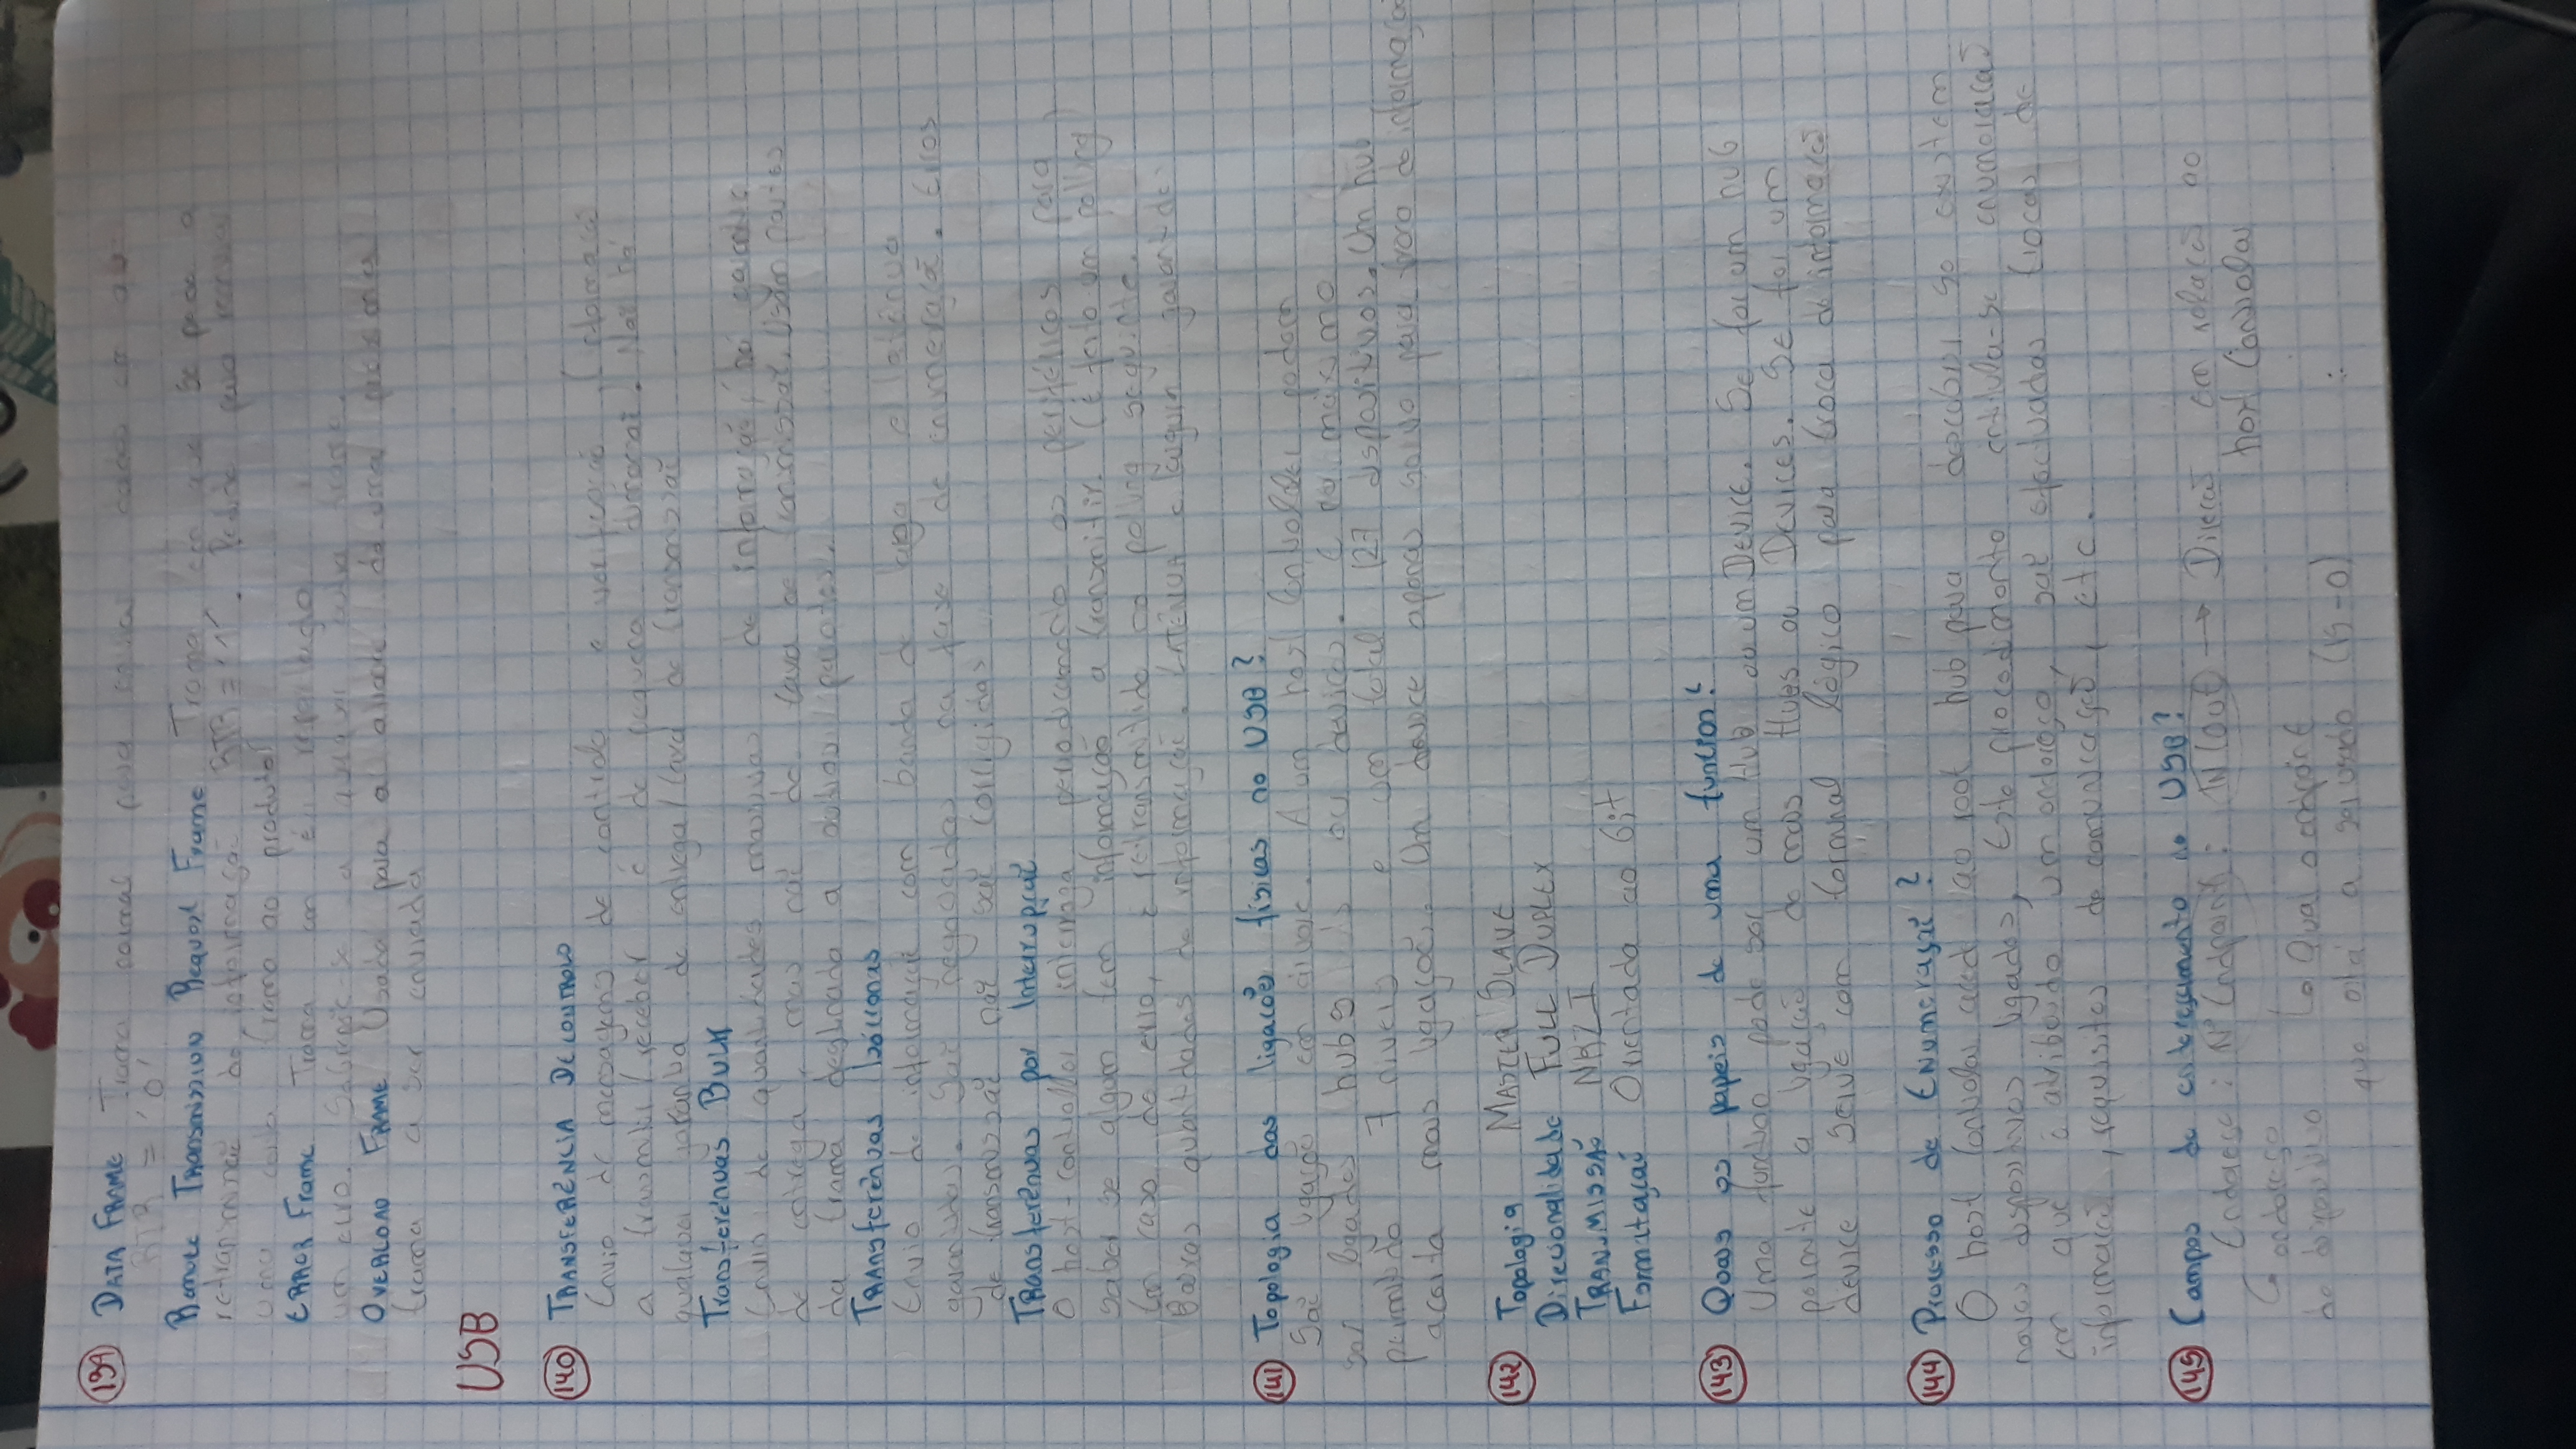 139 DATA FRAME Trama normal para enviar dados
RTR = '0'
Remote Transmission Request Frame Trama em que se pede a
retransmissão de informação RTR = '1'. Pedido para
uma trama ao produtor
ERROR Frame Trama em
um erro. Sobrepõe-se a qualquer outra trama.
OVERLOAD FRAME Usada para o da
trama a ser enviada
USB
140 TRANSFERÊNCIA DE CONTROLO
Envio de mensagens de controlo e verificação
a transmitir/receber é de pequena dimensão. Não há
qualquer garantia de entrega/taxa de transmissão
Transferências BULK
Envio de quantidades massivas de informação, há garantia
de entrega, mas não de taxa de transmissão. Usam partes
da trama a outros
TRAnsferências Isócronas
Envio de informação com banda de larga e latência
garantidas. São negociadas na fase de enumeração. Erros
de transmissão não são corrigidos
TRansferências por Interrupção
O host-controller interroga periodicamente os periféricos para
saber se algum tem informação a transmitir. (É feito um polling)
Em caso de erro, é retransmitido no polling seguinte.
Baixas quantidades de informação. LATÊNCIA e garantida
141 Topologia das ligações físicas no USB?
São ligação em árvore. A um host Controller podem
ser ligados hubs ou devices. É no máximo
permitido 7 níveis e um total 127 dispositivos. Um hub
aceita mais ligações. Um device apenas serve para troca de informação
142 Topologia MASTER SLAVE
Direcionalidade FULL DUPLEX
TRANSMISSÃO NRZI
Formatação Orientada ao bit
143 Quais os papeis de uma function?
Uma function pode ser um HUB ou um DEVICE. Se for um hub
permite a ligação de mais HUBS ou DEVICES. SE for um
device SERVE com terminal lógico para troca de informação
144 Processo de ENumeração?
O host Controller acede ao root hub para descobrir se existem
novos dispositivos ligados, Este procedimento intitula-se enumeração
em que é atribuido um endereço, são efectuadas trocas de
informação, requisitos de comunicação, etc.
145 Campos de endereçamento no USB?
Endereço : Nº Endpoint : IN/OUT → Direção em relação ao
host Controller
↳ endereço
do dispositivo ↳ Qual o endpoint
que está a ser usado (15-0)